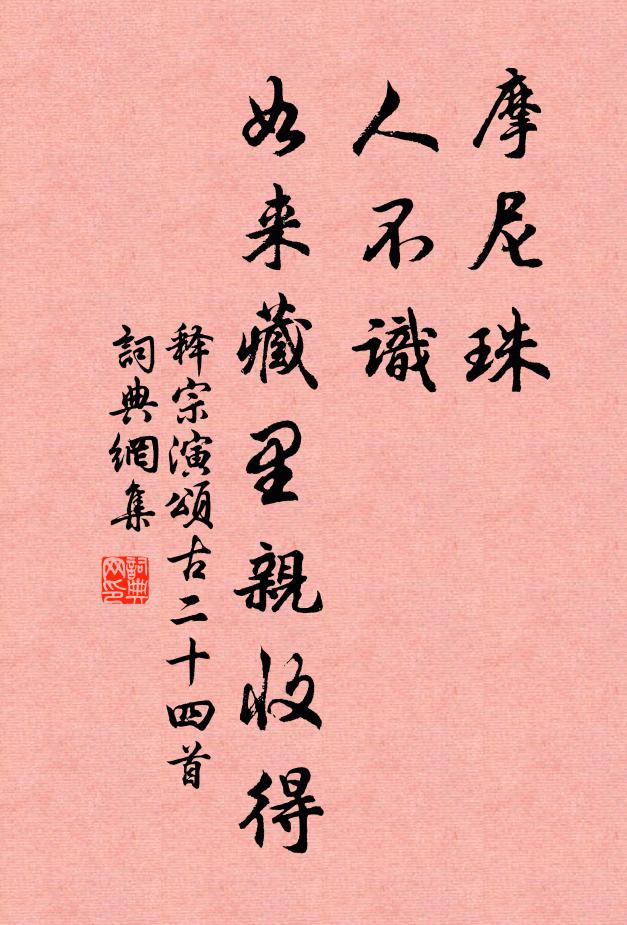 摩尼珠
人不識
如来藏里親收得
释宗演頌古二十四首
詞典網集
詞典网印